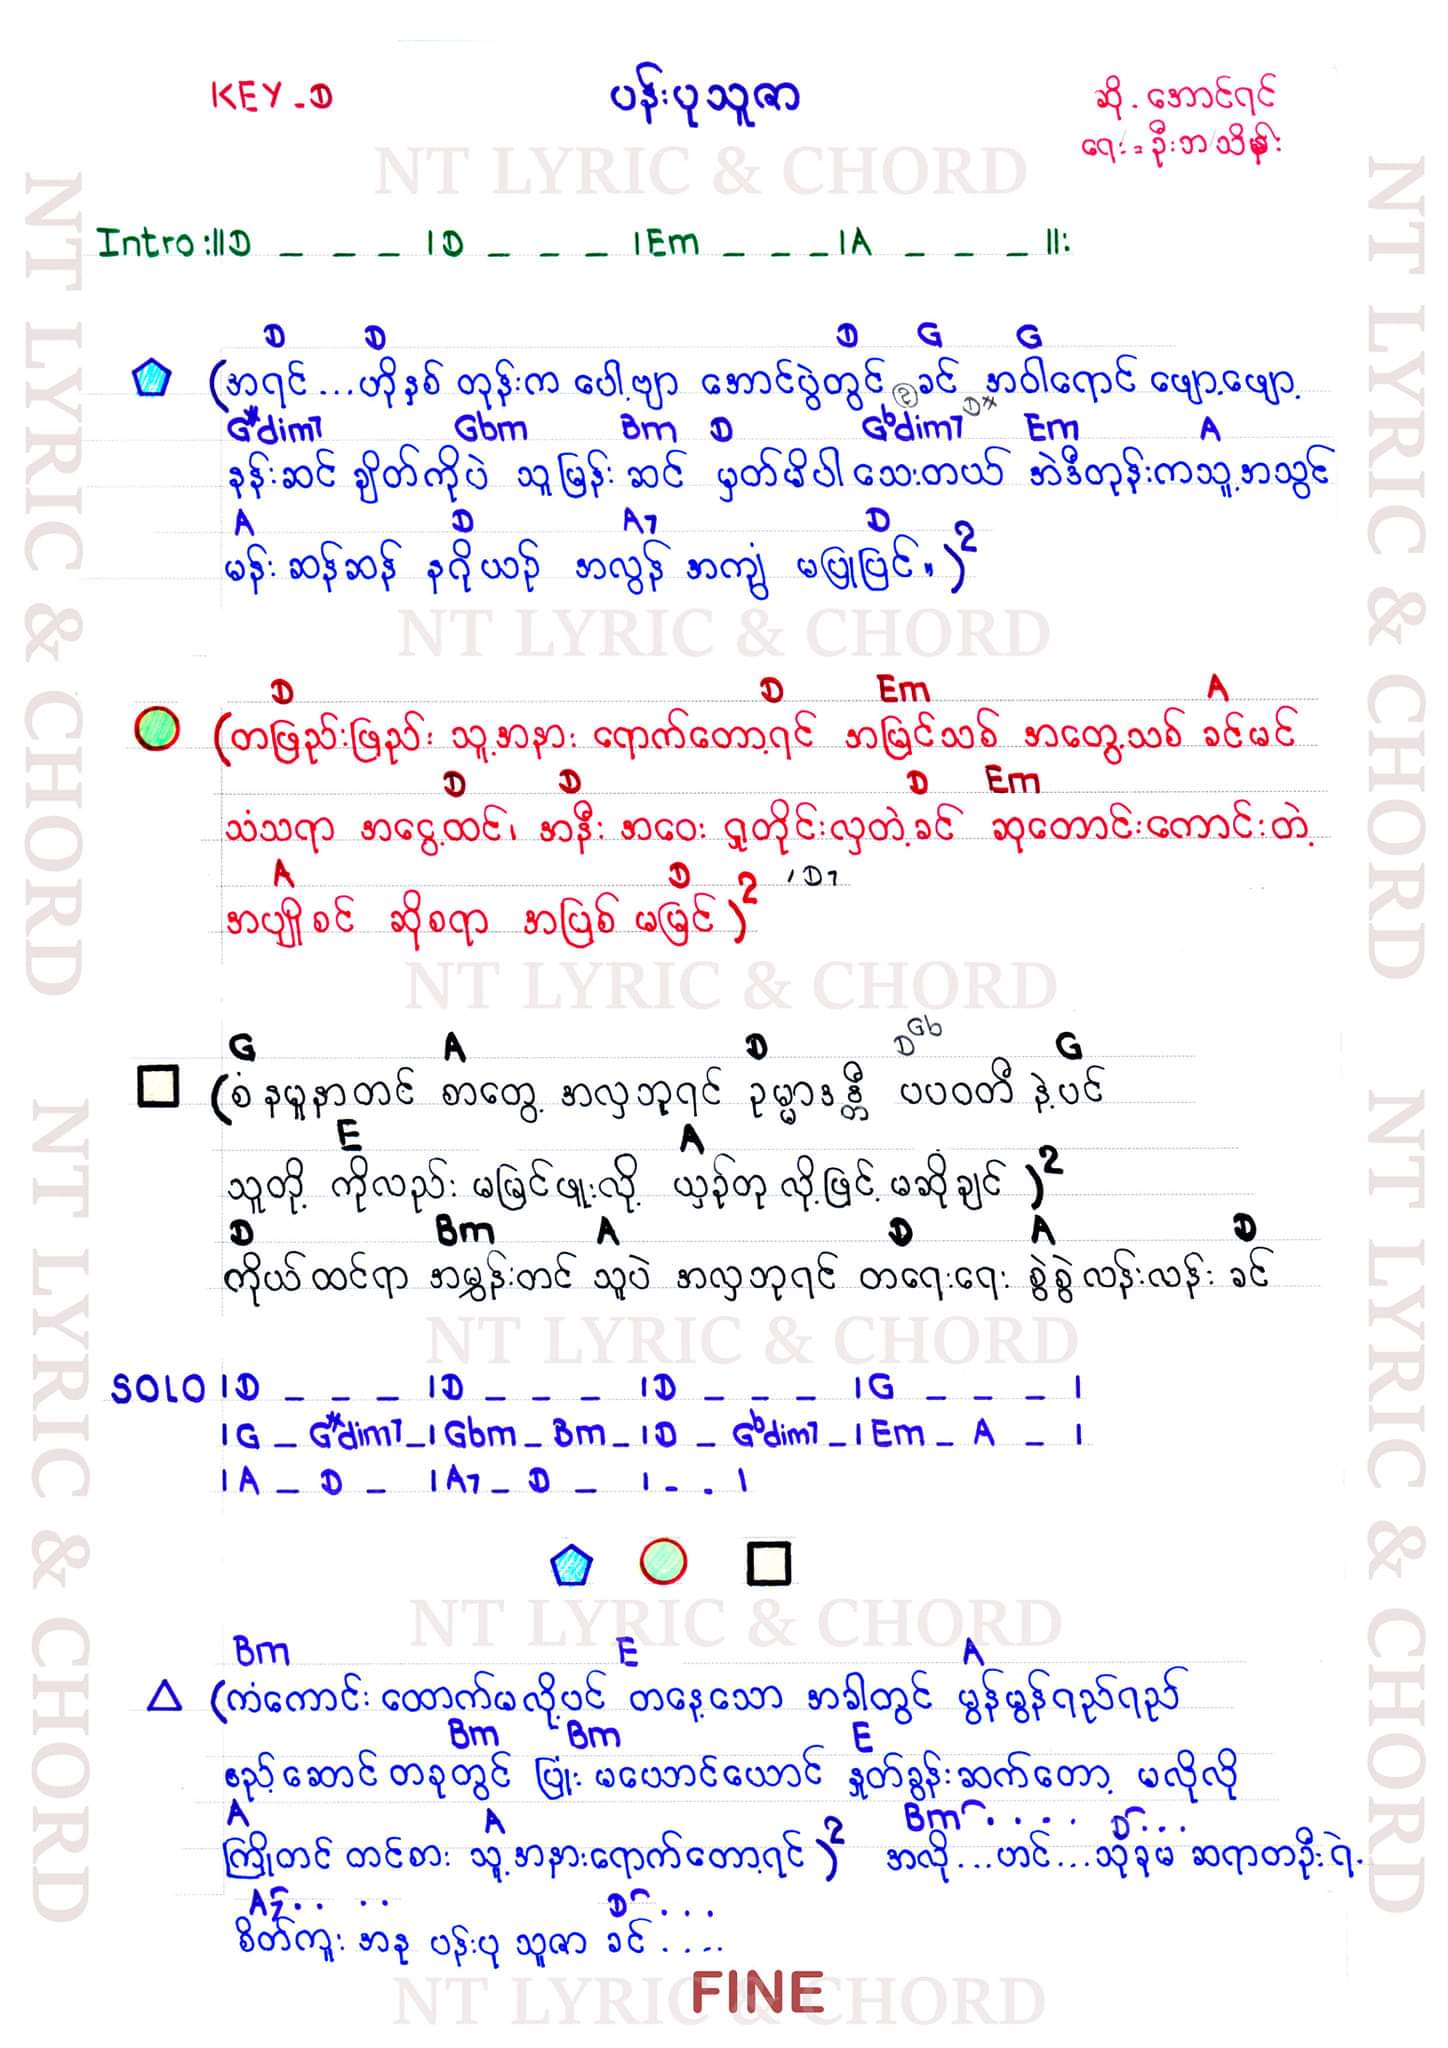 KEY - D
ပန်းပုသူဇာ
ဆို - အောင်ရင်
ရေး = ဦးဘသိန်း
NT LYRIC & CHORD
Intro :||D _ _ _ |D _ _ _ |Em _ _ _ |A _ _ _ ||:
D D D G G
(အရင်...ဟိုနှစ် တုန်းက ပေါ့ဗျာ အောင်ပွဲတွင် ခင် အဝါရောင် ဖျော့ဖျော့
G#dim7 Gbm Bm D Gbdim7 Em A
နန်းဆင် ချိတ်ကိုပဲ သူမြန်းဆင် မှတ်မိပါသေးတယ် အဲဒီတုန်းကသူ့အသွင်
A D A7 D
မန်းဆန်ဆန် နဂိုယဉ် အလွန်အကျွံ မပြုပြင်။ )2
NT LYRIC & CHORD
D D Em A
(တဖြည်းဖြည်း သူ့အနား ရောက်တော့ရင် အမြင်သစ် အတွေ့သစ် ခင်မင်
D D D Em
သံသရာ အငွေ့ထင်၊ အနီး အဝေး ရှုတိုင်းလှတဲ့ခင် ဆုတောင်းကောင်းတဲ့
A D ,D7
အပျိုစင် ဆိုစရာ အပြစ် မမြင် )2
NT LYRIC & CHORD
G A D DGb G
(စံနမူနာတင် စာတွေ့ အလှဘုရင် ဥမ္မာဒန္တီ ပပဝတီ နဲ့ပင်
E A
သူတို့ ကိုလည်း မမြင်ဖူးလို့ ယှဉ်တုလို့ဖြင့် မဆိုချင် )2
D Bm A D A D
ကိုယ်ထင်ရာ အမွှန်းတင် သူပဲ အလှဘုရင် တရေးရေး စွဲစွဲလန်းလန်း ခင်
NT LYRIC & CHORD
SOLO |D _ _ _ |D _ _ _ |D _ _ _ |G _ _ _ |
|G _ G#dim7 _|Gbm _ Bm _|D _ Gbdim7 _|Em _ A _ |
|A _ D _ |A7 _ D _ |- . |
NT LYRIC & CHORD
Bm E A
(ကံကောင်းထောက်မလို့ပင် တနေ့သော အခါတွင် မွန်မွန်ရည်ရည်
Bm Bm E
ဧည့်ဆောင် တခုတွင် ပြုံး မယောင်ယောင် နှုတ်ခွန်းဆက်တော့ မလိုလို
A A Bm.... D...
ကြိုတင် တင်စား သူ့အနားရောက်တော့ရင် )2 အလို...ဟင်...သို့ခုမ ဆရာတဦးရဲ့
A7.. .. D...
စိတ်ကူး အနု ပန်းပု သူဇာ ခင်....
FINE
NT LYRIC & CHORD
NT LYRIC & CHORD
NT LYRIC & CHORD
NT LYRIC & CHORD
NT LYRIC & CHORD